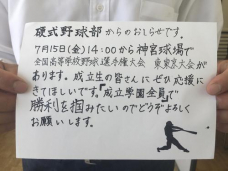 硬式野球部からのおしらせです。
7月15日(金)14:00から神宮球場で
全国高等学校野球選手権大会 東東京大会が
あります。成立生の皆さんにぜひ応援に
きてほしいです。「成立学園全員」で
勝利を掴みたいのでどうぞよろしく
お願いします。